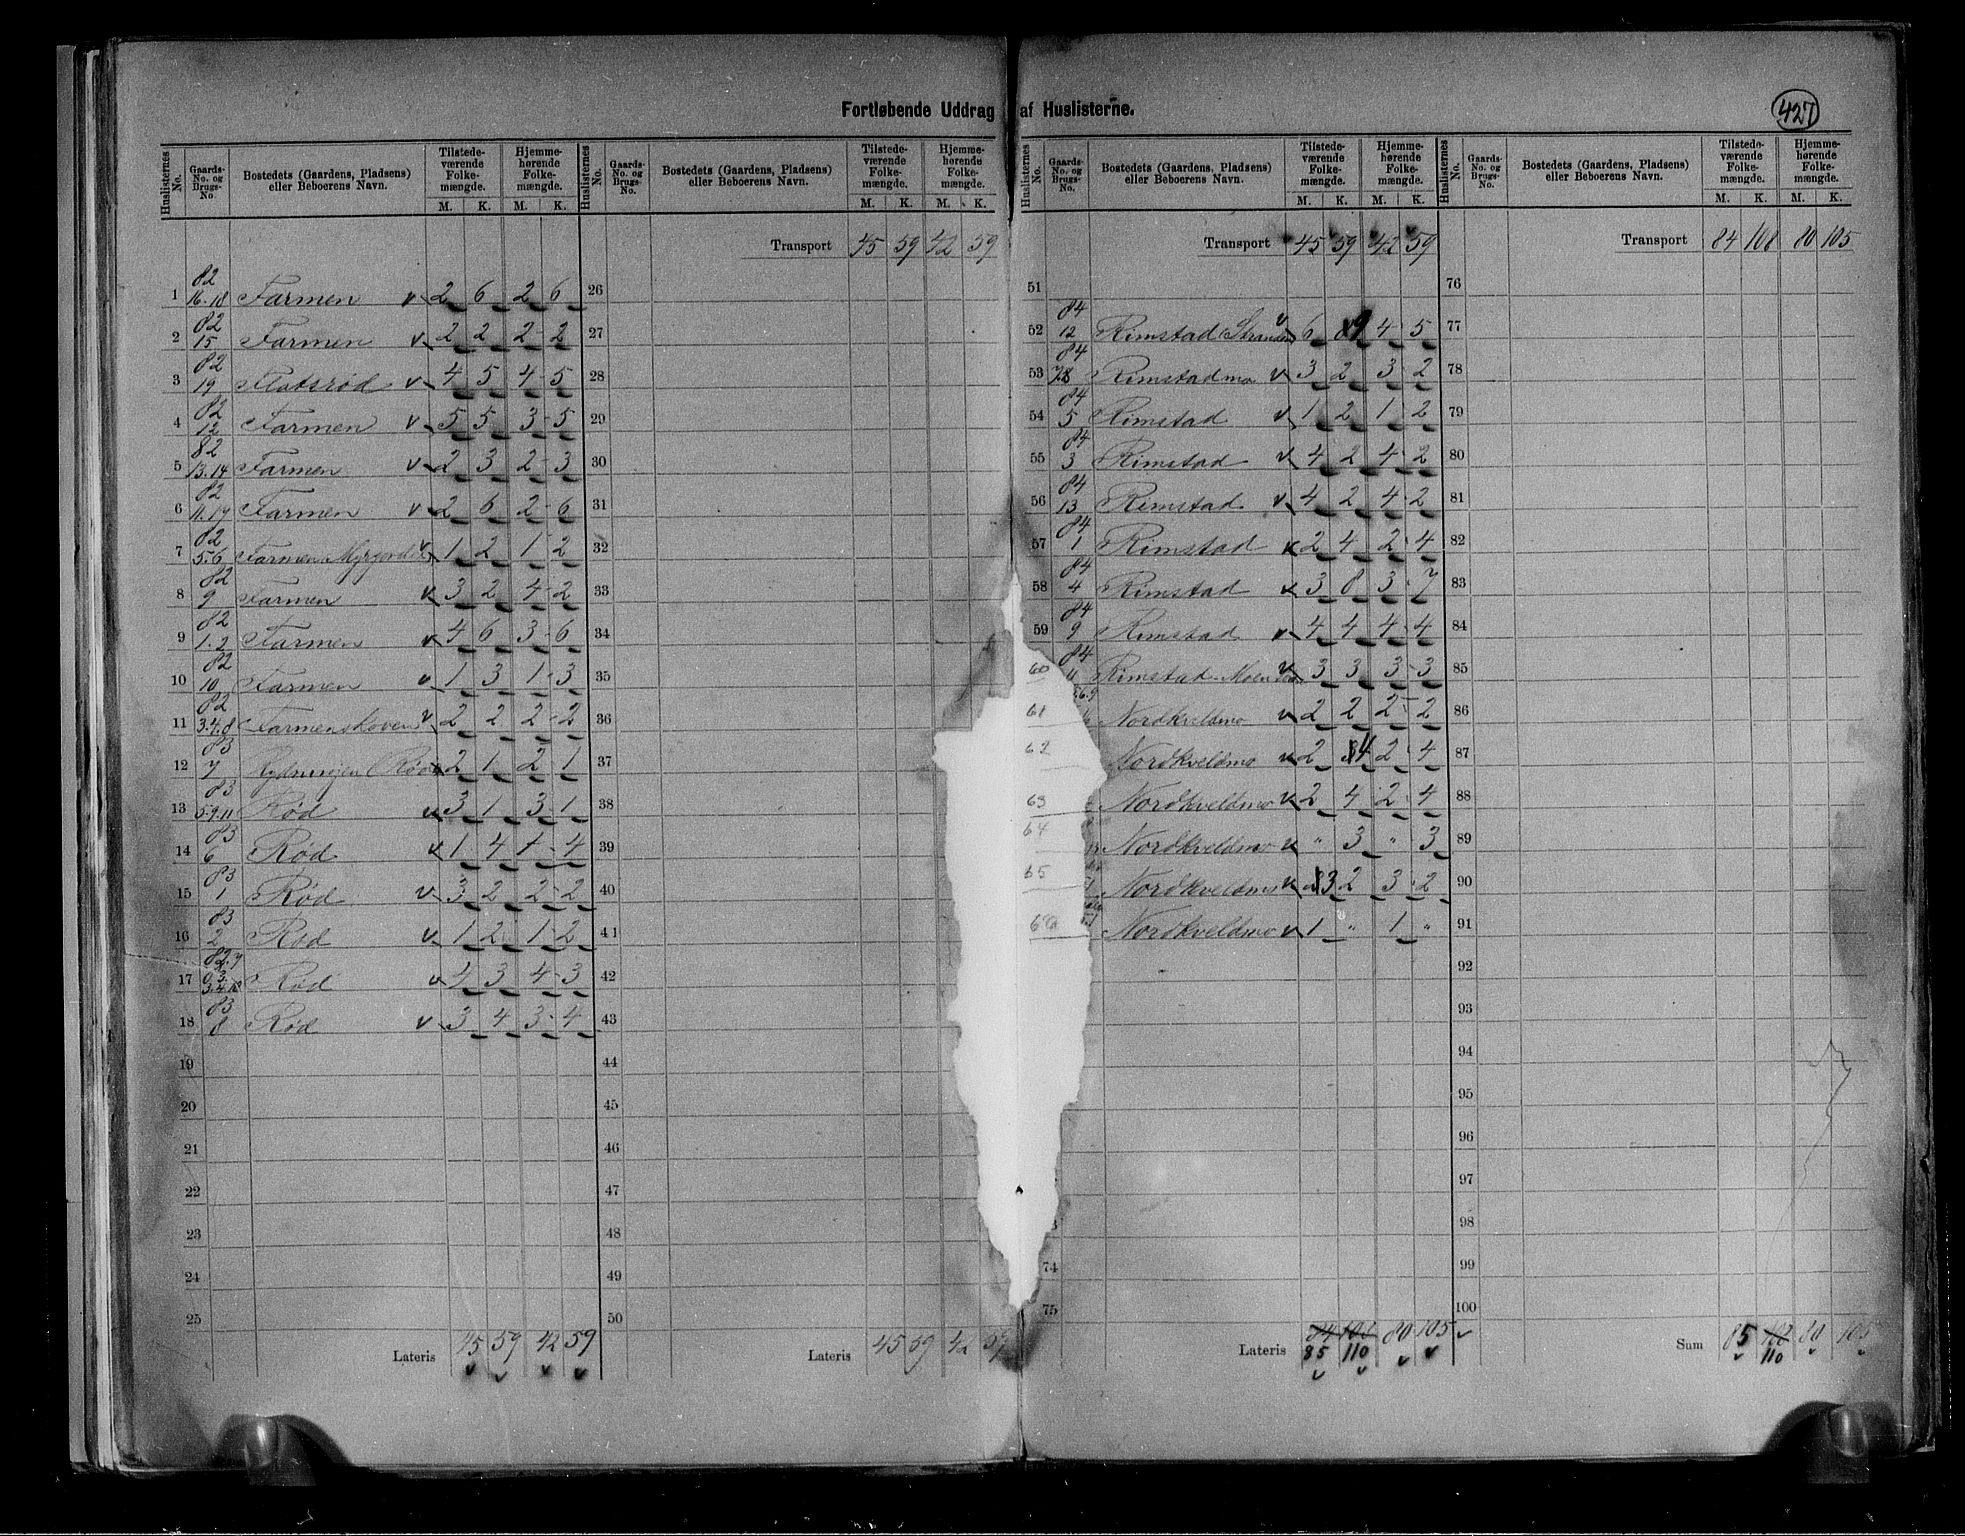 Fortløbende Uddrag af Huslisterne.
427
Huslisternes No. Gaards-No. og Brugs-No. Bostedets (Gaardens, Pladsens) eller Beboerens Navn. Tilstedeværende Folkemængde. M. K. Hjemmehørende Folkemængde. M. K.
1 82 16.18 Farmen v 2 6 2 6
2 82 15 Farmen v 2 2 2 2
3 82 19 Flatsrød v 4 5 4 5
4 82 12 Farmen v 5 5 3 5
5 82 13.14 Farmen v 2 3 2 3
6 82 11.17 Farmen v 2 6 2 6
7 82 5.6 Farmen v 1 2 1 2
8 82 9 Farmen v 3 2 4 2
9 82 1.2 Farmen v 4 6 3 6
10 82 10 Farmen v 1 3 1 3
11 82 3.4.8 Farmenskoven v 2 2 2 2
12 83 7 2 1 2 1
13 83 5.9.11 Rød v 3 1 3 1
14 83 6 Rød v 1 4 1 4
15 83 1 Rød v 3 2 2 2
16 83 2 Rød v 1 2 1 2
17 Rød v 4 3 4 3
18 83 8 Rød v 3 4 3 4
19
20
21
22
23
24
25
Lateris 45 59 42 59
Huslisternes No. Gaards-No. og Brugs-No. Bostedets (Gaardens, Pladsens) eller Beboerens Navn. Tilstedeværende Folkemængde. M. K. Hjemmehørende Folkemængde. M. K.
Transport 45 59 42 59
26
27
28
29
30
31
32
33
34
35
36
37
38
39
40
41
42
43
44
45
46
47
48
49
50
Lateris 45 59 42 59
Huslisternes No. Gaards-No. og Brugs-No. Bostedets (Gaardens, Pladsens) eller Beboerens Navn. Tilstedeværende Folkemængde. M. K. Hjemmehørende Folkemængde. M. K.
Transport 45 59 42 59
51
52 84 12 Rimstad Stranden v 6 9 4 5
53 84 7.8 Rimstadmo v 3 2 3 2
54 84 5 Rimstad v 1 2 1 2
55 84 3 Rimstad v 4 2 4 2
56 84 13 Rimstad v 4 2 4 2
57 84 1 Rimstad v 2 4 2 4
58 84 4 Rimstad v 3 8 3 7
59 84 9 Rimstad v 4 4 4 4
60 84 11 Rimstad v 3 3 3 3
61 Nordkveldmo v 2 2 2 2
62 Nordkveldmo v 2 4 2 4
63 Nordkveldmo v 2 4 2 4
64 Nordkveldmo v " 3 " 3
65 Nordkveldmo v 3 2 3 2
66 Nordkveldmo v 1 " 1 "
74
75
Lateris 84 108 80 105 v
85 110
Huslisternes No. Gaards-No. og Brugs-No. Bostedets (Gaardens, Pladsens) eller Beboerens Navn. Tilstedeværende Folkemængde. M. K. Hjemmehørende Folkemængde. M. K.
Transport 84 108 80 105
76
77
78
79
80
81
82
83
84
85
86
87
88
89
90
91
92
93
94
95
96
97
98
99
100
Sum 85 108 80 105
110